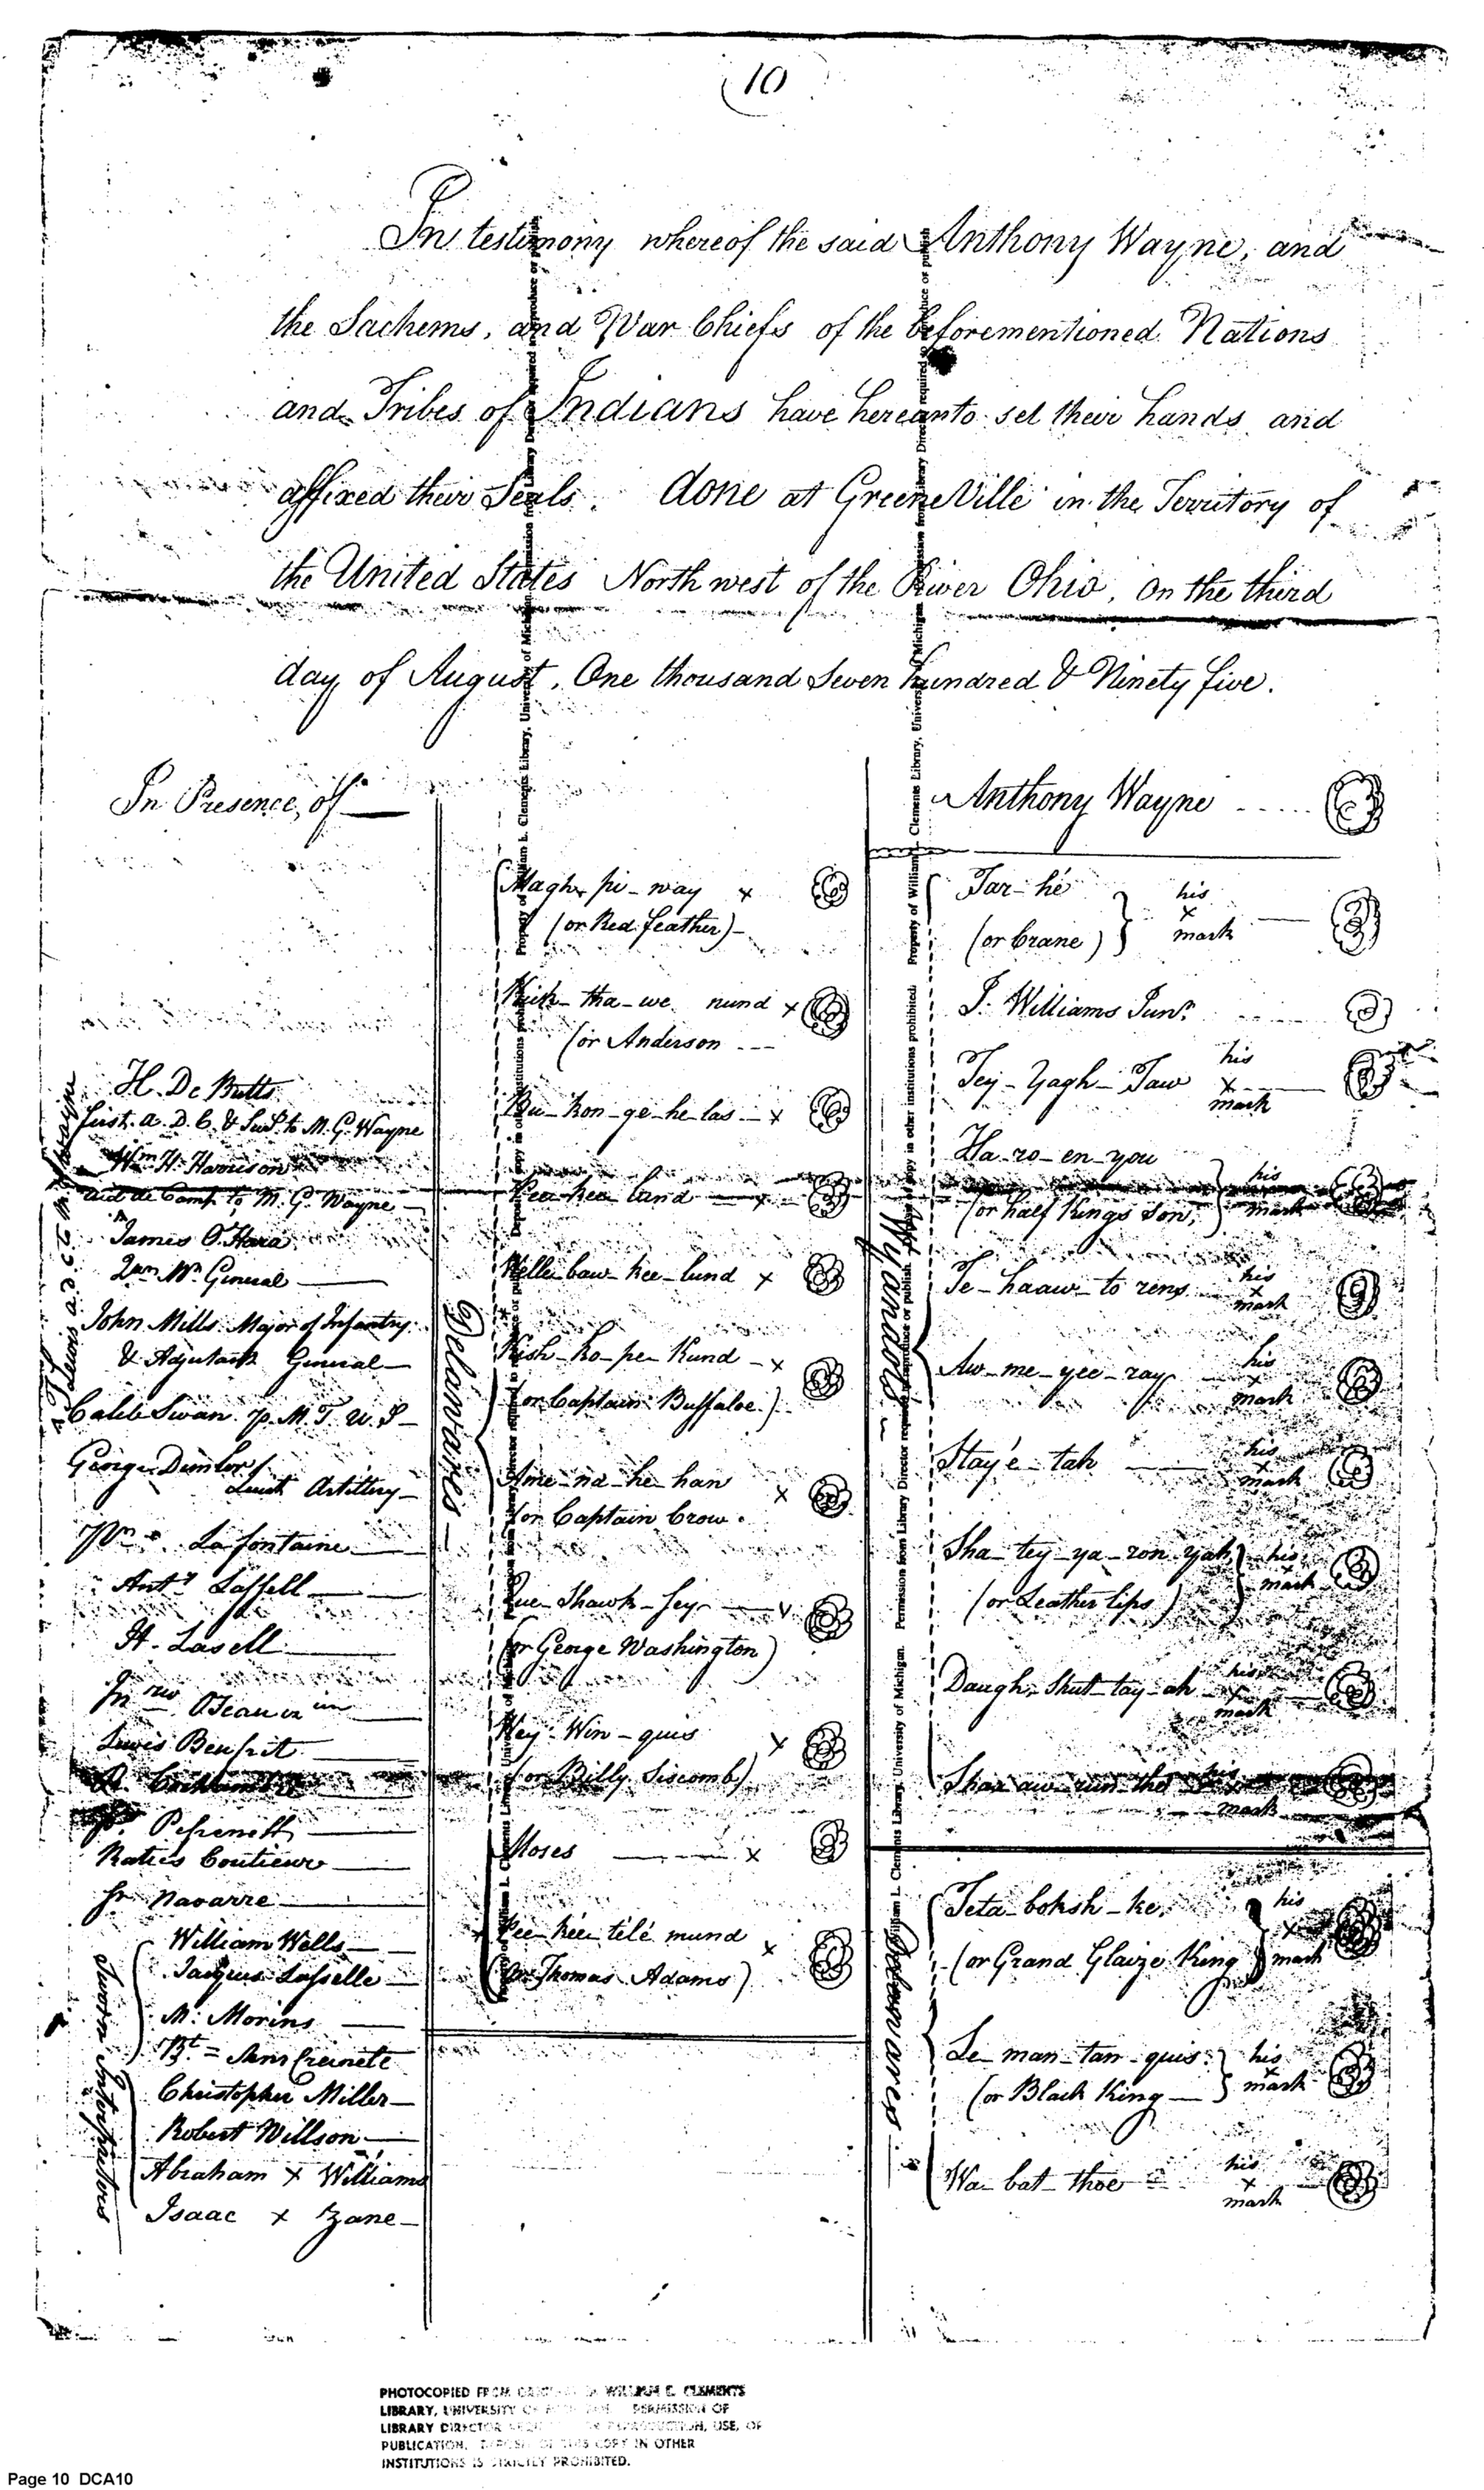 (10
In testimony whereof the said Anthony Wayne, and
the Sachems, and War Chiefs of the beforementioned Nations
and Tribes of Indians have hereunto set their hands and
affixed their Seals. done at GreeneVille in the Territory of
the United States North west of the River Ohio, on the third
day of August, One thousand Seven hundred & Ninety five.
In Presence, of
H. De Butts
first. A. D. C. & Secy. to M. G. Wayne
Wm H. Harrison
Aid de Camp to M. G. Wayne
T Lewis a d c to M G Wayne
James O Hara
Qur. Mr. General
John Mills Major of Infantry
& Adjutant General
Caleb Swan. P. M. T. U. S
George Demter
Lieut Artillery
Lafontaine
Anty. Lassell
H. Lasell
Jn
Lewis Beufrit
R.
Raties Coutieur
Jn. Navarre
Sworn Interpreters
William Wells
Jacques Lasselle
M. Morins
Bt = Sans Creinete
Christopher Miller
Robert Willson
Abraham x Williams
Isaac x Zane
Delawares
Magh pi-way x
(or Red feather)
Kik-tha-we nund x
(or Anderson
Bu-kon-ge-he-las x
Pee-kee lund x
Welle baw-kee-lund x
Kish-ko-pe kund - x
(or Captain Buffaloe.)
Ame-na-he-han x
(or Captain Crow.
Que-Shawk-sey
(or George Washington)
Wey-Win-quis x
(or Billy Siscomb)
Moses x
Pee-kee télé mund x
(or Thomas Adams)
Anthony Wayne
Wyandots
Tar-hé
(or Crane) } his x mark
J. Williams Junr.
Tey-Yagh-Taw his x mark
Ha-ro-en-you
(or half Kings son, } his x mark
Te-haaw-to rens his x mark
Aw-me-yee-ray his x mark
Stayé-tah his x mark
Sha-tey-ya-ron-yah
(or Leather lips) } his x mark
Daugh-Shut-tay-ah his x mark
Shaa aw-run-the his x mark
Delawares
Teta-boksh-ke.
(or Grand Glaize King } his x mark
Le-man-tan-quis
(or Black King } his x mark
Wa-bat-thoe his x mark
Property of William L. Clements Library, University of Michigan. Permission from Library Director required to reproduce or publish. Deposit of copy in other institutions prohibited.
PHOTOCOPIED FROM WILLIAM L. CLEMENTS
LIBRARY, UNIVERSITY OF PERMISSION OF
LIBRARY DIRECTOR REPRODUCTION, USE, OR
PUBLICATION. DEPOSIT OF THIS COPY IN OTHER
INSTITUTIONS IS STRICTLY PROHIBITED.
Page 10 DCA10